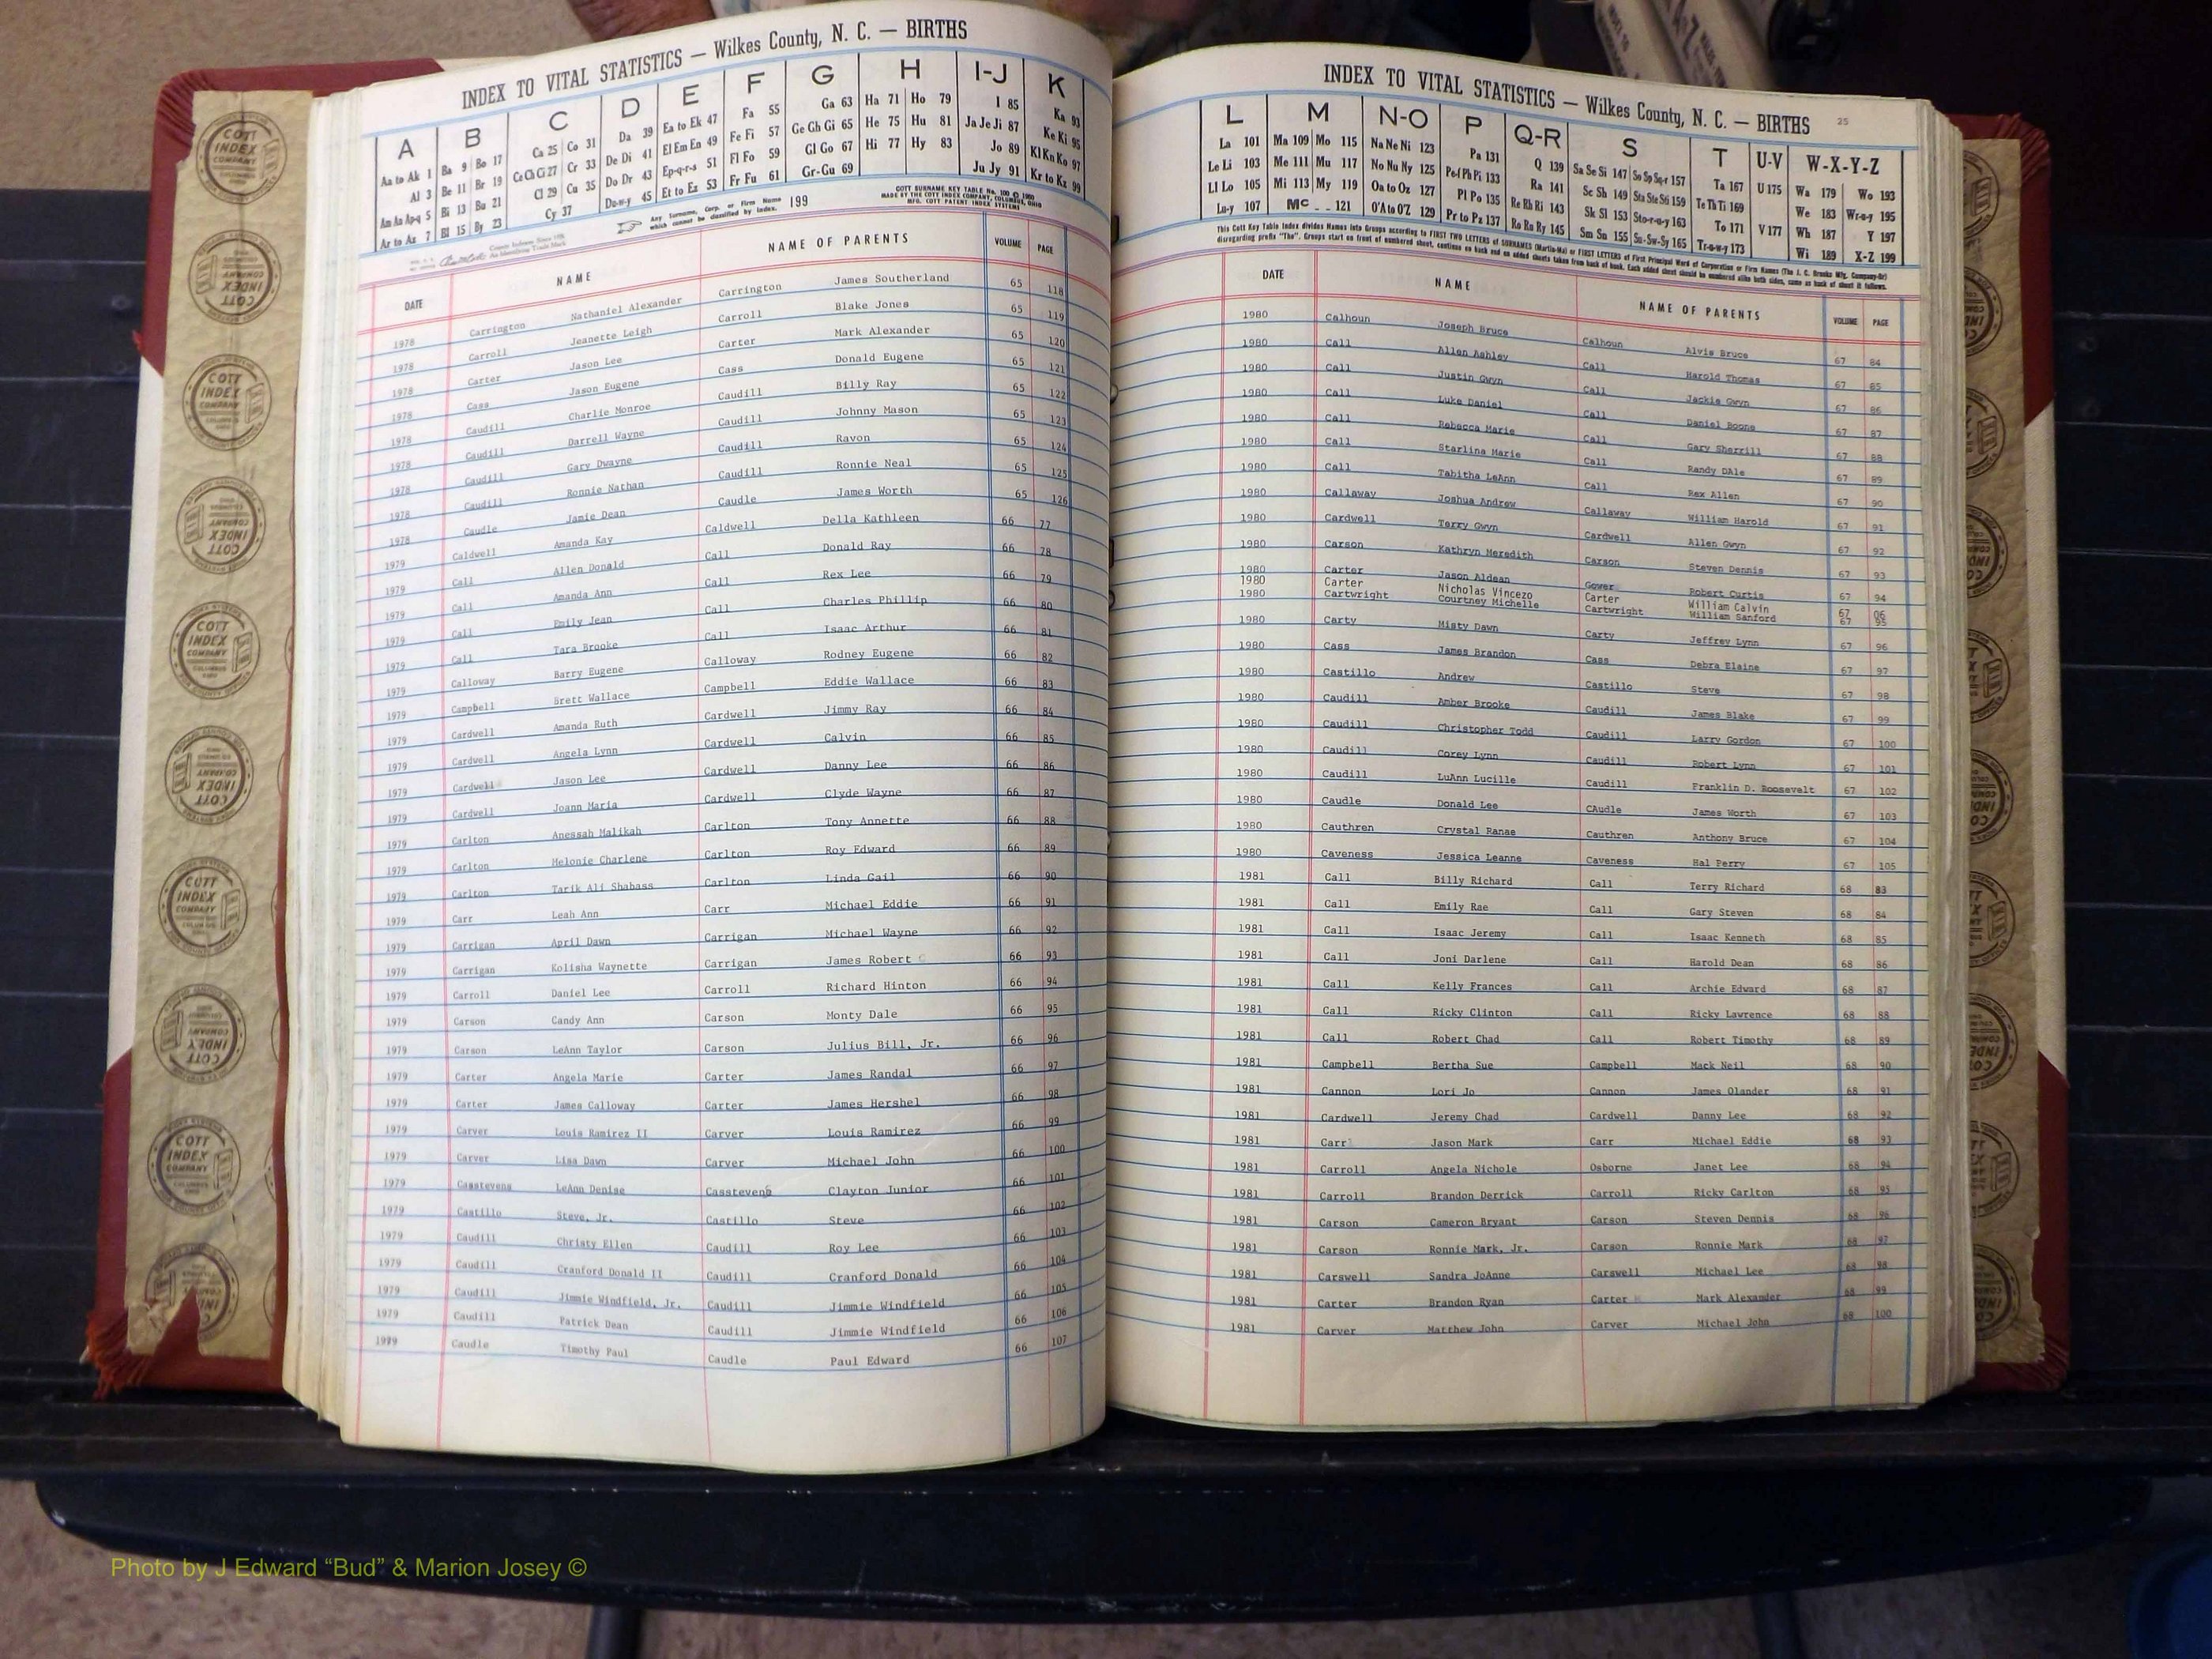 INDEX TO VITAL STATISTICS — Wilkes County, N. C. — BIRTHS
A B C D E F G H I-J K
Aa to Ak 1 Ba 9 Bo 17 Ca 25 Co 31 Da 39 Ea to Ek 47 Fa 55 Ga 63 Ha 71 Ho 79 I 85 Ka 93
Al 3 Be 11 Br 19 Ce Ch Ci 27 Cr 33 De Di 41 El Em En 49 Fe Fi 57 Ge Gh Gi 65 He 75 Hu 81 Ja Je Ji 87 Ke Ki 95
Am An Ap-q 5 Bi 13 Bu 21 Cl 29 Cu 35 Do Dr 43 Ep-q-r-s 51 Fl Fo 59 Gl Go 67 Hi 77 Hy 83 Jo 89 Kl Kn Ko 97
Ar to Az 7 Bl 15 By 23 Cy 37 Du-w-y 45 Et to Ez 53 Fr Fu 61 Gr-Gu 69 Ju Jy 91 Kr to Kz 99
Any Surname, Corp. or Firm Name which cannot be classified by Index. 199
COTT SURNAME KEY TABLE No. 100
MADE BY THE COTT INDEX COMPANY, COLUMBUS, OHIO
MFG. COTT PATENT INDEX SYSTEMS
DATE NAME NAME OF PARENTS VOLUME PAGE
1978 Carrington Nathaniel Alexander Carrington James Southerland 65 118
1978 Carroll Jeanette Leigh Carroll Blake Jones 65 119
1978 Carter Jason Lee Carter Mark Alexander 65 120
1978 Cass Jason Eugene Cass Donald Eugene 65 121
1978 Caudill Charlie Monroe Caudill Billy Ray 65 122
1978 Caudill Darrell Wayne Caudill Johnny Mason 65 123
1978 Caudill Gary Dwayne Caudill Ravon 65 124
1978 Caudill Ronnie Nathan Caudill Ronnie Neal 65 125
1978 Caudle Jamie Dean Caudle James Worth 65 126
1979 Caldwell Amanda Kay Caldwell Della Kathleen 66 77
1979 Call Allen Donald Call Donald Ray 66 78
1979 Call Amanda Ann Call Rex Lee 66 79
1979 Call Emily Jean Call Charles Phillip 66 80
1979 Call Tara Brooke Call Isaac Arthur 66 81
1979 Calloway Barry Eugene Calloway Rodney Eugene 66 82
1979 Campbell Brett Wallace Campbell Eddie Wallace 66 83
1979 Cardwell Amanda Ruth Cardwell Jimmy Ray 66 84
1979 Cardwell Angela Lynn Cardwell Calvin 66 85
1979 Cardwell Jason Lee Cardwell Danny Lee 66 86
1979 Cardwell Joann Maria Cardwell Clyde Wayne 66 87
1979 Carlton Anessah Malikah Carlton Tony Annette 66 88
1979 Carlton Melonie Charlene Carlton Roy Edward 66 89
1979 Carlton Tarik Ali Shabass Carlton Linda Gail 66 90
1979 Carr Leah Ann Carr Michael Eddie 66 91
1979 Carrigan April Dawn Carrigan Michael Wayne 66 92
1979 Carrigan Kolisha Waynette Carrigan James Robert 66 93
1979 Carroll Daniel Lee Carroll Richard Hinton 66 94
1979 Carson Candy Ann Carson Monty Dale 66 95
1979 Carson LeAnn Taylor Carson Julius Bill, Jr. 66 96
1979 Carter Angela Marie Carter James Randal 66 97
1979 Carter James Calloway Carter James Hershel 66 98
1979 Carver Louis Ramirez II Carver Louis Ramirez 66 99
1979 Carver Lisa Dawn Carver Michael John 66 100
1979 Casstevens LeAnn Denise Casstevens Clayton Junior 66 101
1979 Castillo Steve, Jr. Castillo Steve 66 102
1979 Caudill Christy Ellen Caudill Roy Lee 66 103
1979 Caudill Cranford Donald II Caudill Cranford Donald 66 104
1979 Caudill Jimmie Windfield, Jr. Caudill Jimmie Windfield 66 105
1979 Caudill Patrick Dean Caudill Jimmie Windfield 66 106
1979 Caudle Timothy Paul Caudle Paul Edward 66 107
INDEX TO VITAL STATISTICS — Wilkes County, N. C. — BIRTHS 25
L M N-O P Q-R S T U-V W-X-Y-Z
La 101 Ma 109 Mo 115 Na Ne Ni 123 Pa 131 Q 139 Sa Se Si 147 So Sp Sq-r 157 Ta 167 U 175 Wa 179 Wo 193
Le Li 103 Me 111 Mu 117 No Nu Ny 125 Pe-f Ph Pi 133 Ra 141 Sc Sh 149 Sta Ste Sti 159 Te Th Ti 169 We 183 Wr-u-y 195
Ll Lo 105 Mi 113 My 119 Oa to Oz 127 Pl Po 135 Re Rh Ri 143 Sk Sl 153 Sto-r-u-y 163 To 171 V 177 Wh 187 Y 197
Lu-y 107 Mc 121 O'A to O'Z 129 Pr to Pz 137 Ro Ru Ry 145 Sm Sn 155 Su-Sw-Sy 165 Tr-u-w-y 173 Wi 189 X-Z 199
This Cott Key Table Index divides Names into Groups according to FIRST TWO LETTERS of SURNAMES (Martin-Ma) or FIRST LETTERS of First Principal Word of Corporation or Firm Names (The J. C. Brooks Mfg. Company-Br)
disregarding prefix "The". Groups start on front of numbered sheet, continue on back and on added sheets taken from back of book. Each added sheet should be numbered alike both sides, same as back of sheet it follows.
DATE NAME NAME OF PARENTS VOLUME PAGE
1980 Calhoun Joseph Bruce Calhoun Alvis Bruce 67 84
1980 Call Allen Ashley Call Harold Thomas 67 85
1980 Call Justin Gwyn Call Jackie Gwyn 67 86
1980 Call Luke Daniel Call Daniel Boone 67 87
1980 Call Rebecca Marie Call Gary Sherrill 67 88
1980 Call Starlina Marie Call Randy DAle 67 89
1980 Call Tabitha LeAnn Call Rex Allen 67 90
1980 Callaway Joshua Andrew Callaway William Harold 67 91
1980 Cardwell Terry Gwyn Cardwell Allen Gwyn 67 92
1980 Carson Kathryn Meredith Carson Steven Dennis 67 93
1980 Carter Jason Aldean Gower Robert Curtis 67 94
1980 Carter Nicholas Vincezo Carter William Calvin 67 06
1980 Cartwright Courtney Michelle Cartwright William Sanford 67 95
1980 Carty Misty Dawn Carty Jeffrey Lynn 67 96
1980 Cass James Brandon Cass Debra Elaine 67 97
1980 Castillo Andrew Castillo Steve 67 98
1980 Caudill Amber Brooke Caudill James Blake 67 99
1980 Caudill Christopher Todd Caudill Larry Gordon 67 100
1980 Caudill Corey Lynn Caudill Robert Lynn 67 101
1980 Caudill LuAnn Lucille Caudill Franklin D. Roosevelt 67 102
1980 Caudle Donald Lee CAudle James Worth 67 103
1980 Cauthren Crystal Ranae Cauthren Anthony Bruce 67 104
1980 Caveness Jessica Leanne Caveness Hal Perry 67 105
1981 Call Billy Richard Call Terry Richard 68 83
1981 Call Emily Rae Call Gary Steven 68 84
1981 Call Isaac Jeremy Call Isaac Kenneth 68 85
1981 Call Joni Darlene Call Harold Dean 68 86
1981 Call Kelly Frances Call Archie Edward 68 87
1981 Call Ricky Clinton Call Ricky Lawrence 68 88
1981 Call Robert Chad Call Robert Timothy 68 89
1981 Campbell Bertha Sue Campbell Mack Neil 68 90
1981 Cannon Lori Jo Cannon James Olander 68 91
1981 Cardwell Jeremy Chad Cardwell Danny Lee 68 92
1981 Carr Jason Mark Carr Michael Eddie 68 93
1981 Carroll Angela Nichole Osborne Janet Lee 68 94
1981 Carroll Brandon Derrick Carroll Ricky Carlton 68 95
1981 Carson Cameron Bryant Carson Steven Dennis 68 96
1981 Carson Ronnie Mark, Jr. Carson Ronnie Mark 68 97
1981 Carswell Sandra JoAnne Carswell Michael Lee 68 98
1981 Carter Brandon Ryan Carter Mark Alexander 68 99
1981 Carver Matthew John Carver Michael John 68 100
COTT
INDEX
COMPANY
Photo by J Edward “Bud” & Marion Josey ©